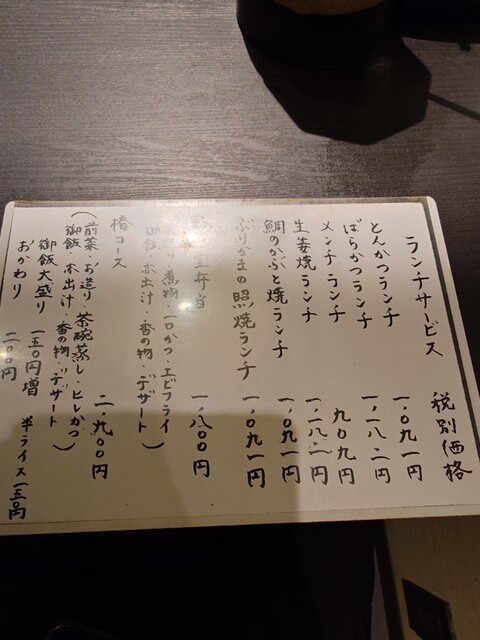 ランチサービス 税別価格
とんかつランチ 一、〇九一円
ばらかつランチ 一、一八二円
メンチランチ 九〇九円
生姜焼ランチ 一、一八二円
鯛のかぶと焼ランチ 一、〇九一円
ぶりかまの照焼ランチ 一、〇九一円
弁当 一、八〇〇円
煮物・一口かつ・エビフライ
御飯・赤出汁・香の物・デザート）
椿コース 二、九〇〇円
（前菜・お造り・茶碗蒸し・ヒレかつ
御飯・赤出汁・香の物・デザート）
御飯大盛り 一五〇円増 半ライス一五〇円
おかわり 二〇〇円